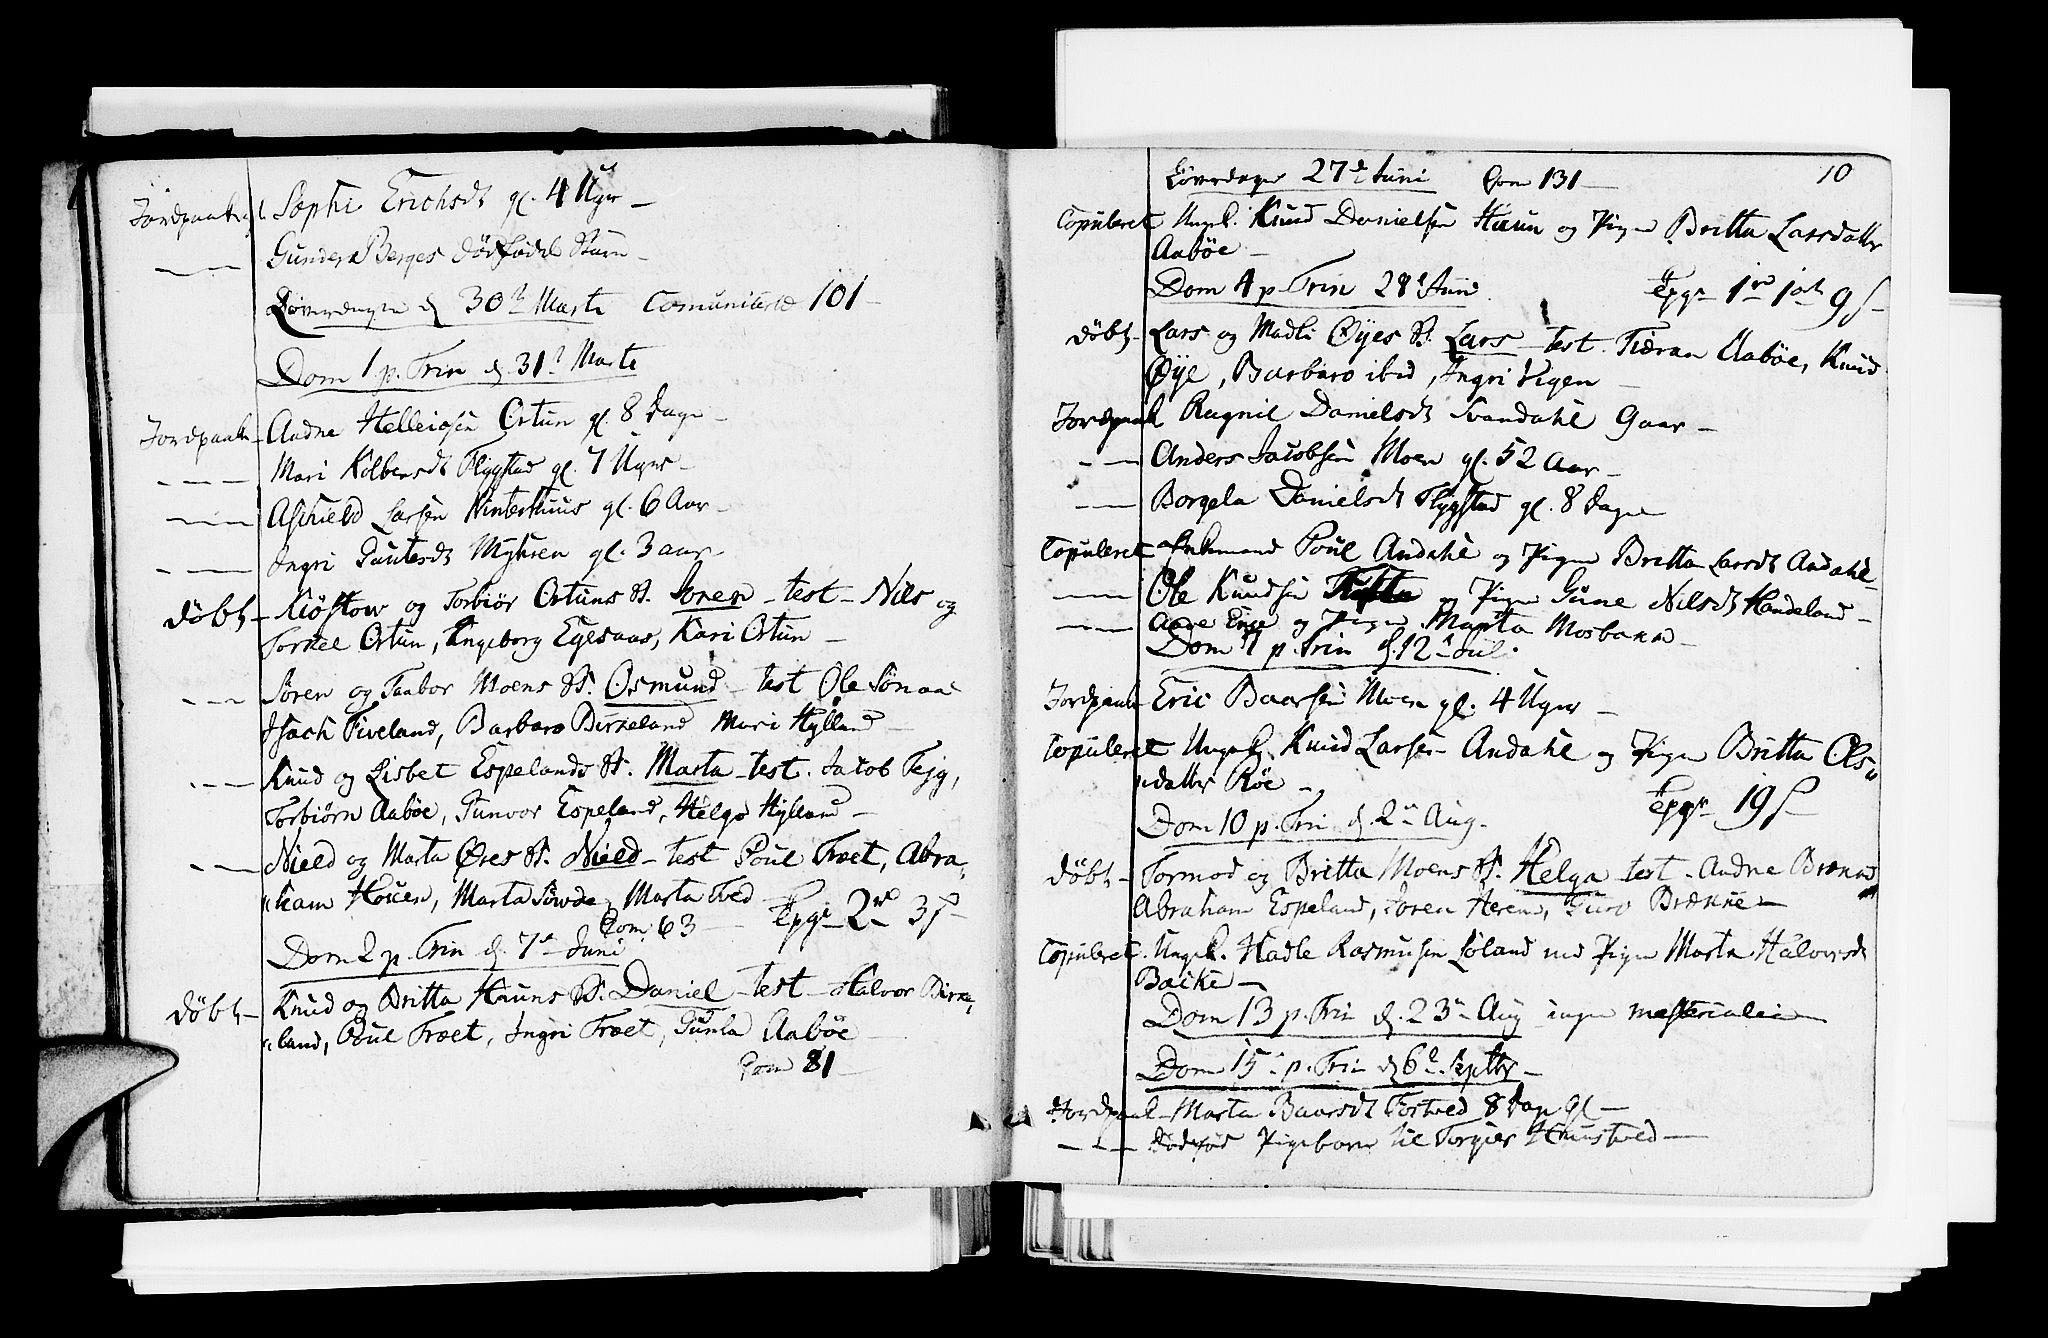 Jordpaak: Sophi Erichsdt gl. 4 Uger
— Gunder Berges dødfødde Barn
Løverdagen d 30te Marti Comunicerte 101
Dom 1 p. Trin d. 31t Marti
Jordpaak: Aadne Helleiesen Ortun gl. 8 Dage
— Mari Kolbensdt Flygstad gl. 7 Uger
— Aschield Larsen Winterhuus gl. 6 Aar
— Ingri Gautesdt Myhren gl. 3 aar
døbt Kiøstow og Torbiør Ortuns B. Soren test Nils og
Torkel Ortun, Ingeborg Egesaas, Kari Ortun
— Søren og Taabor Moens B. Osmund test Ole Sønaa
Isach Tiveland, Barbaro Birkeland Mari Hylland
— Knud og Lisbet Espelands B. Marta test. Jacob Tejg,
Torbiørn Aabøe, Gunvor Espeland, Helgo Hylland
— Nield og Marta Øres B. Nield test Poul Træt, Abra
"ham Houen, Marta Sowde, Marta Tved
Com 63 2 3
Dom 2 p. Trin d. 7de Juni
døbt Knud og Britta Hauns B. Daniel test Halvor Birke
"land, Poul Træet, Ingri Træet, Gunla Aabøe
Com 81
10
Løverdagen 27de Juni Com 131
Copuleret Ungk. Knud Danielsen Haun og Pigen Britta Larsdatter
Aabøe
Dom 4 p. Trin 28d Juni
døbt Lars og Madli Øyes B. Lars test. Tiæran Aabøe, Knud
Øye, Barbaro ibid, Ingri Vigen
Jordpaak Ragnil Danielsdt Svandahl Gaar
— Anders Jacobsen Moen gl. 52 Aar
— Borgela Danielsdt Flygstad gl. 8 Dage
Copuleret Enkemand Poul Andahl og Pigen Britta Larsdt Andahl
— Ole Knudsen og Pigen Gune Nilsdt Handeland
— Enge og Pigen Marta Mosbakn
Dom 7 p. Trin d. 12te Juli
Jordpaak Eric Baarsen Moen gl. 4 Uger
Copuleret Ungk. Knud Larsen Andahl og Pigen Britta Ols"
"datter Røe
Dom 10 p. Trin d. 2den Aug. 19
døbt Tormod og Britta Moens B. Helga test. Aadne Brænne
Abraham Espeland, Soren Heren, Guro Brænne
Copuleret. Ungk. Hadle Rasmusen Loland med Pigen Marta Halvorsdt
Bakke
Dom 13 p. Trin d. 23de Aug ingen
Dom 15 p. Trin d 6te Septbr
Jordpaak Marta Baarsdt Tortved 8 Dage gl
— Dødfød Pigebarn til Torgier Knustved